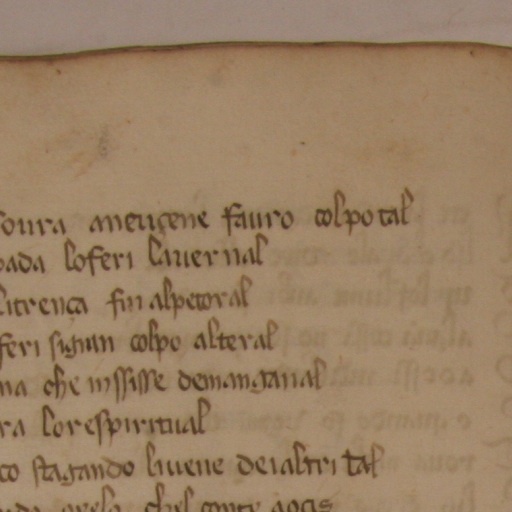 soura aneuçene fauro colpo tal
pada loferi lauernal
litrença fin alpetoral
feri signun colpo alteral
ma che inssisse demanganal
ra lorespiritual
co stagando liuene deialtri tal
chel conte aocis